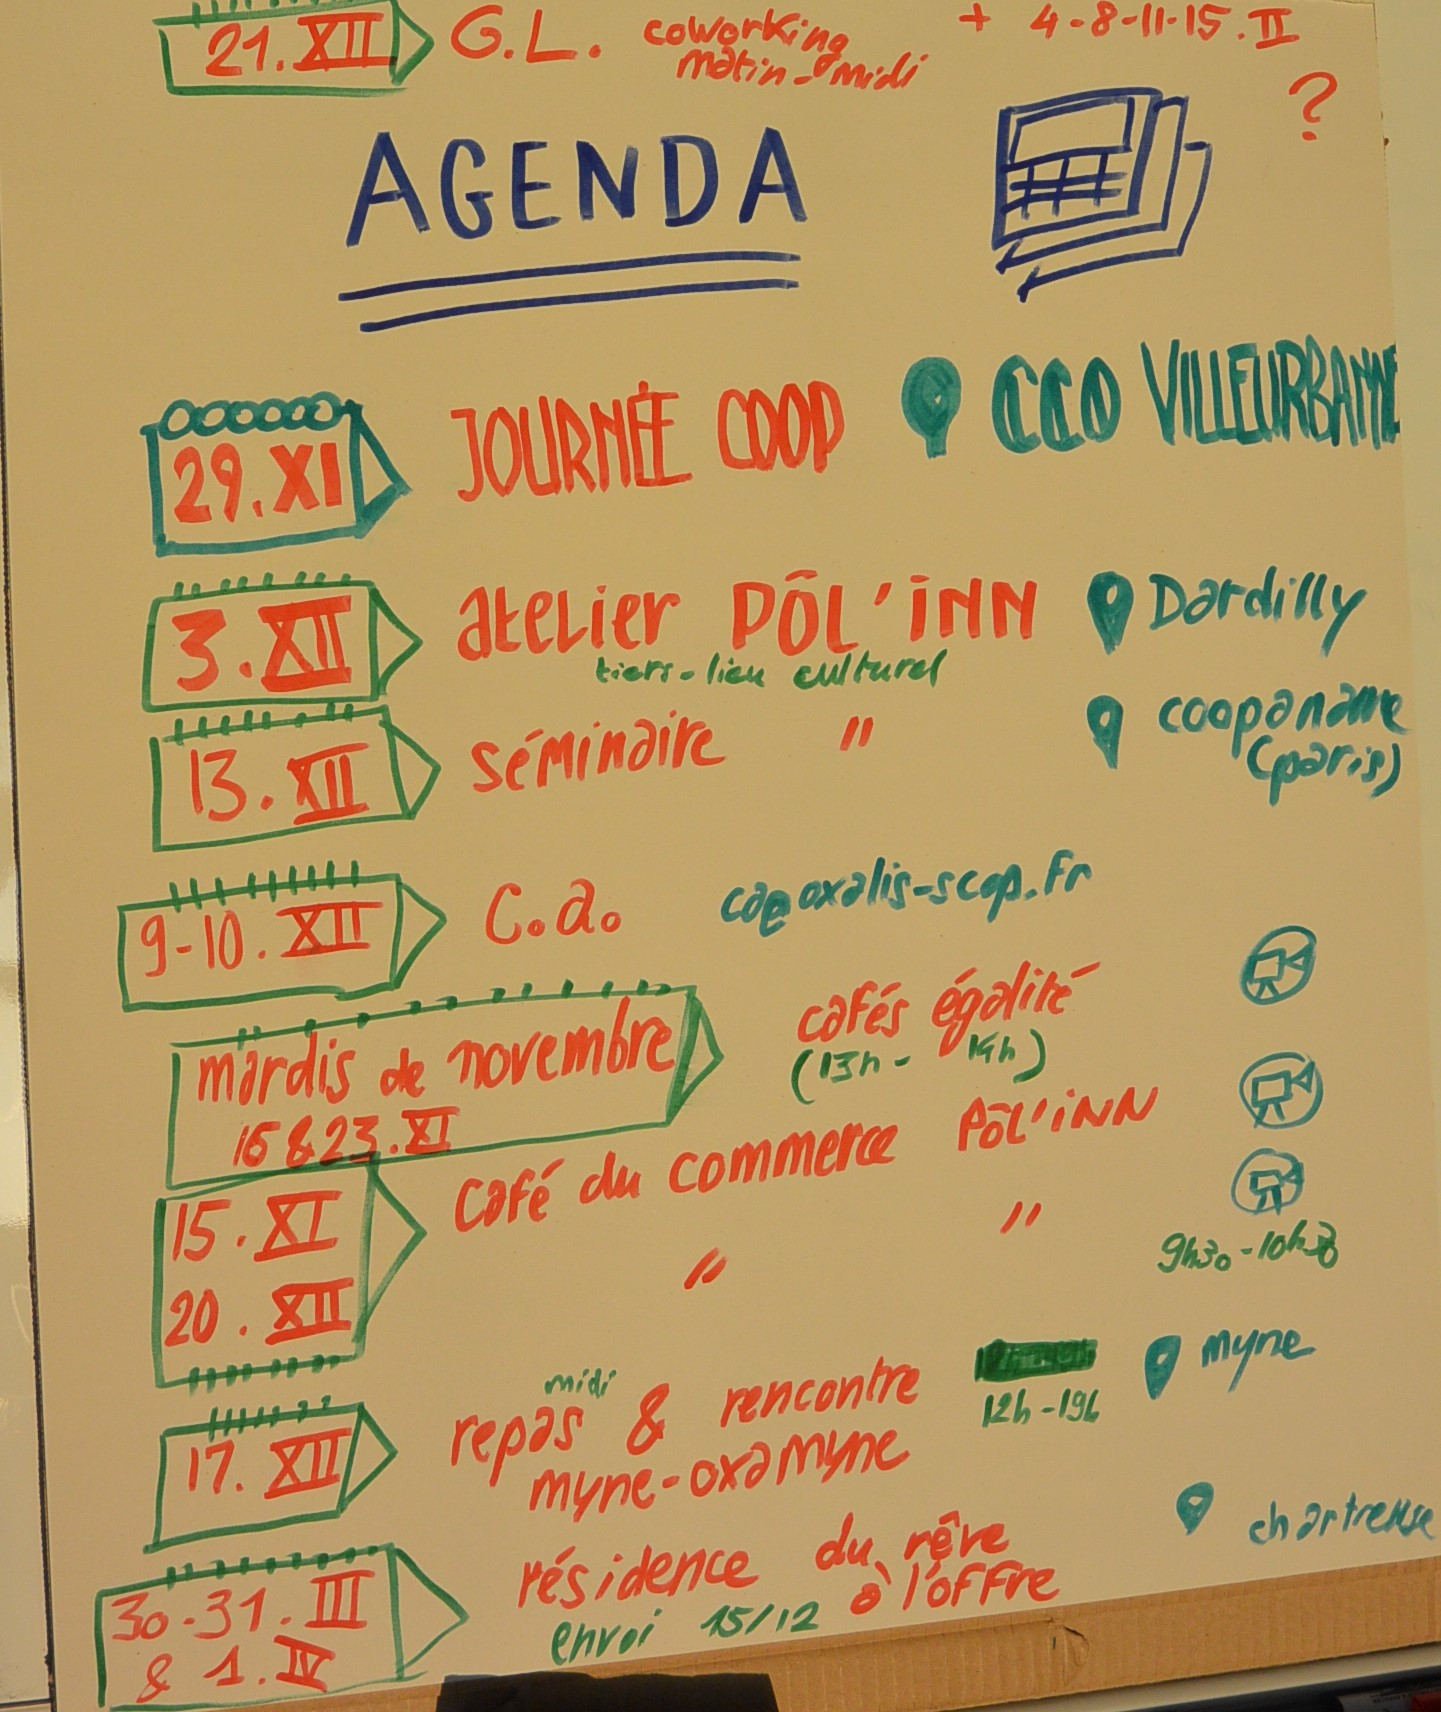 21.XII G.L. coworking + 4-8-11-15.II
matin-midi ?
AGENDA
29.XI JOURNÉE COOP CCO VILLEURBANNE
3.XII atelier PÔL'iNN Dardilly
tiers-lieu culturel
13.XII séminaire " coopaname
(paris)
9-10.XII C.a. ca@oxalis-scop.fr
mardis de novembre cafés égalité
16&23.XI (13h-14h)
15.XI café du commerce PÔL'iNN
20.XII " "
9h30-10h30
17.XII repas midi & rencontre 12h-19h myne
myne-oxamyne
30-31.III résidence du rêve chartreuse
& 1.IV envoi 15/12 à l'offre